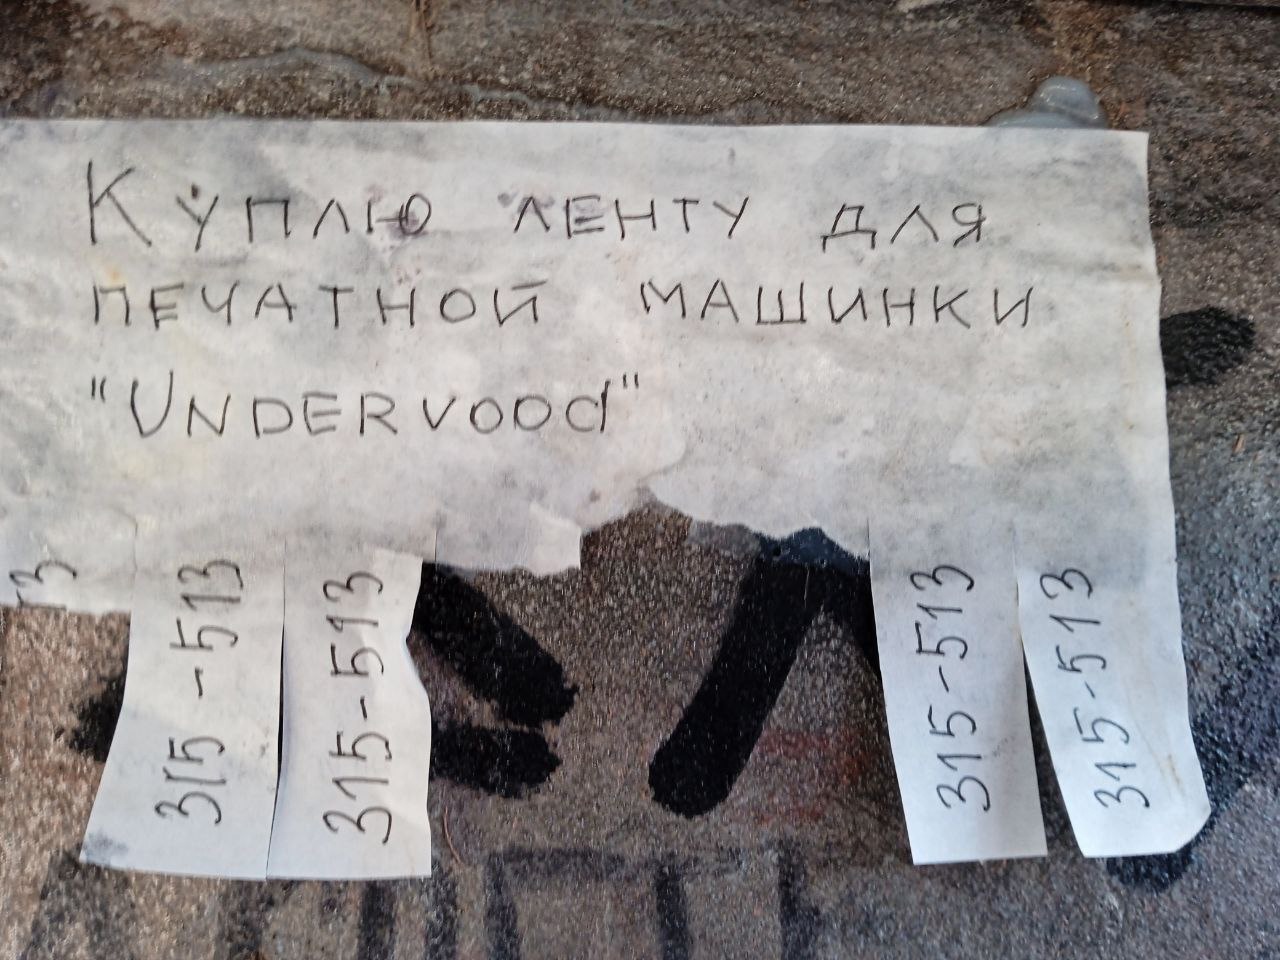 Куплю ленту для
печатной машинки
"UNDERVOOd"
315-513
315-513
315-513
315-513